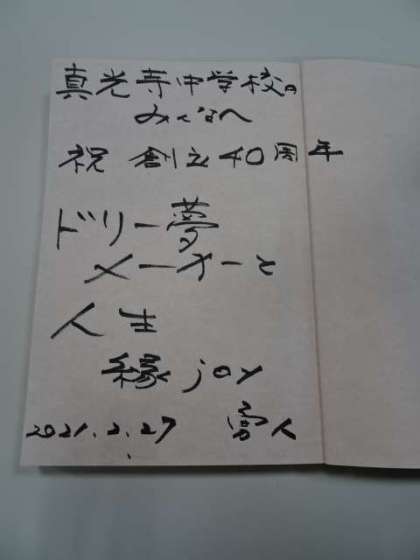 真光寺中学校の
みんなへ
祝 創立40周年
ドリー夢
メーカーと
人生
縁joy
2021.2.27